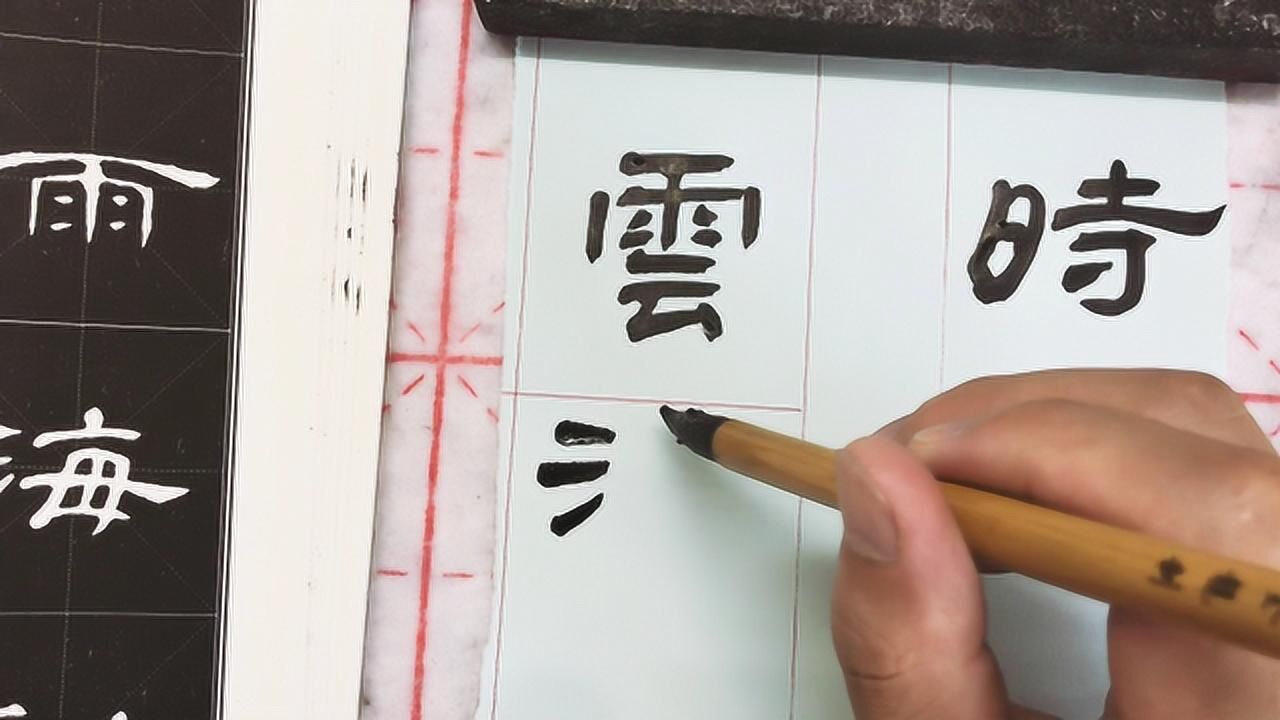 時
雲氵
雨海